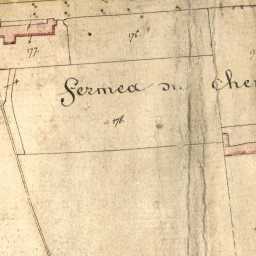 176
177
Fermea du che
178